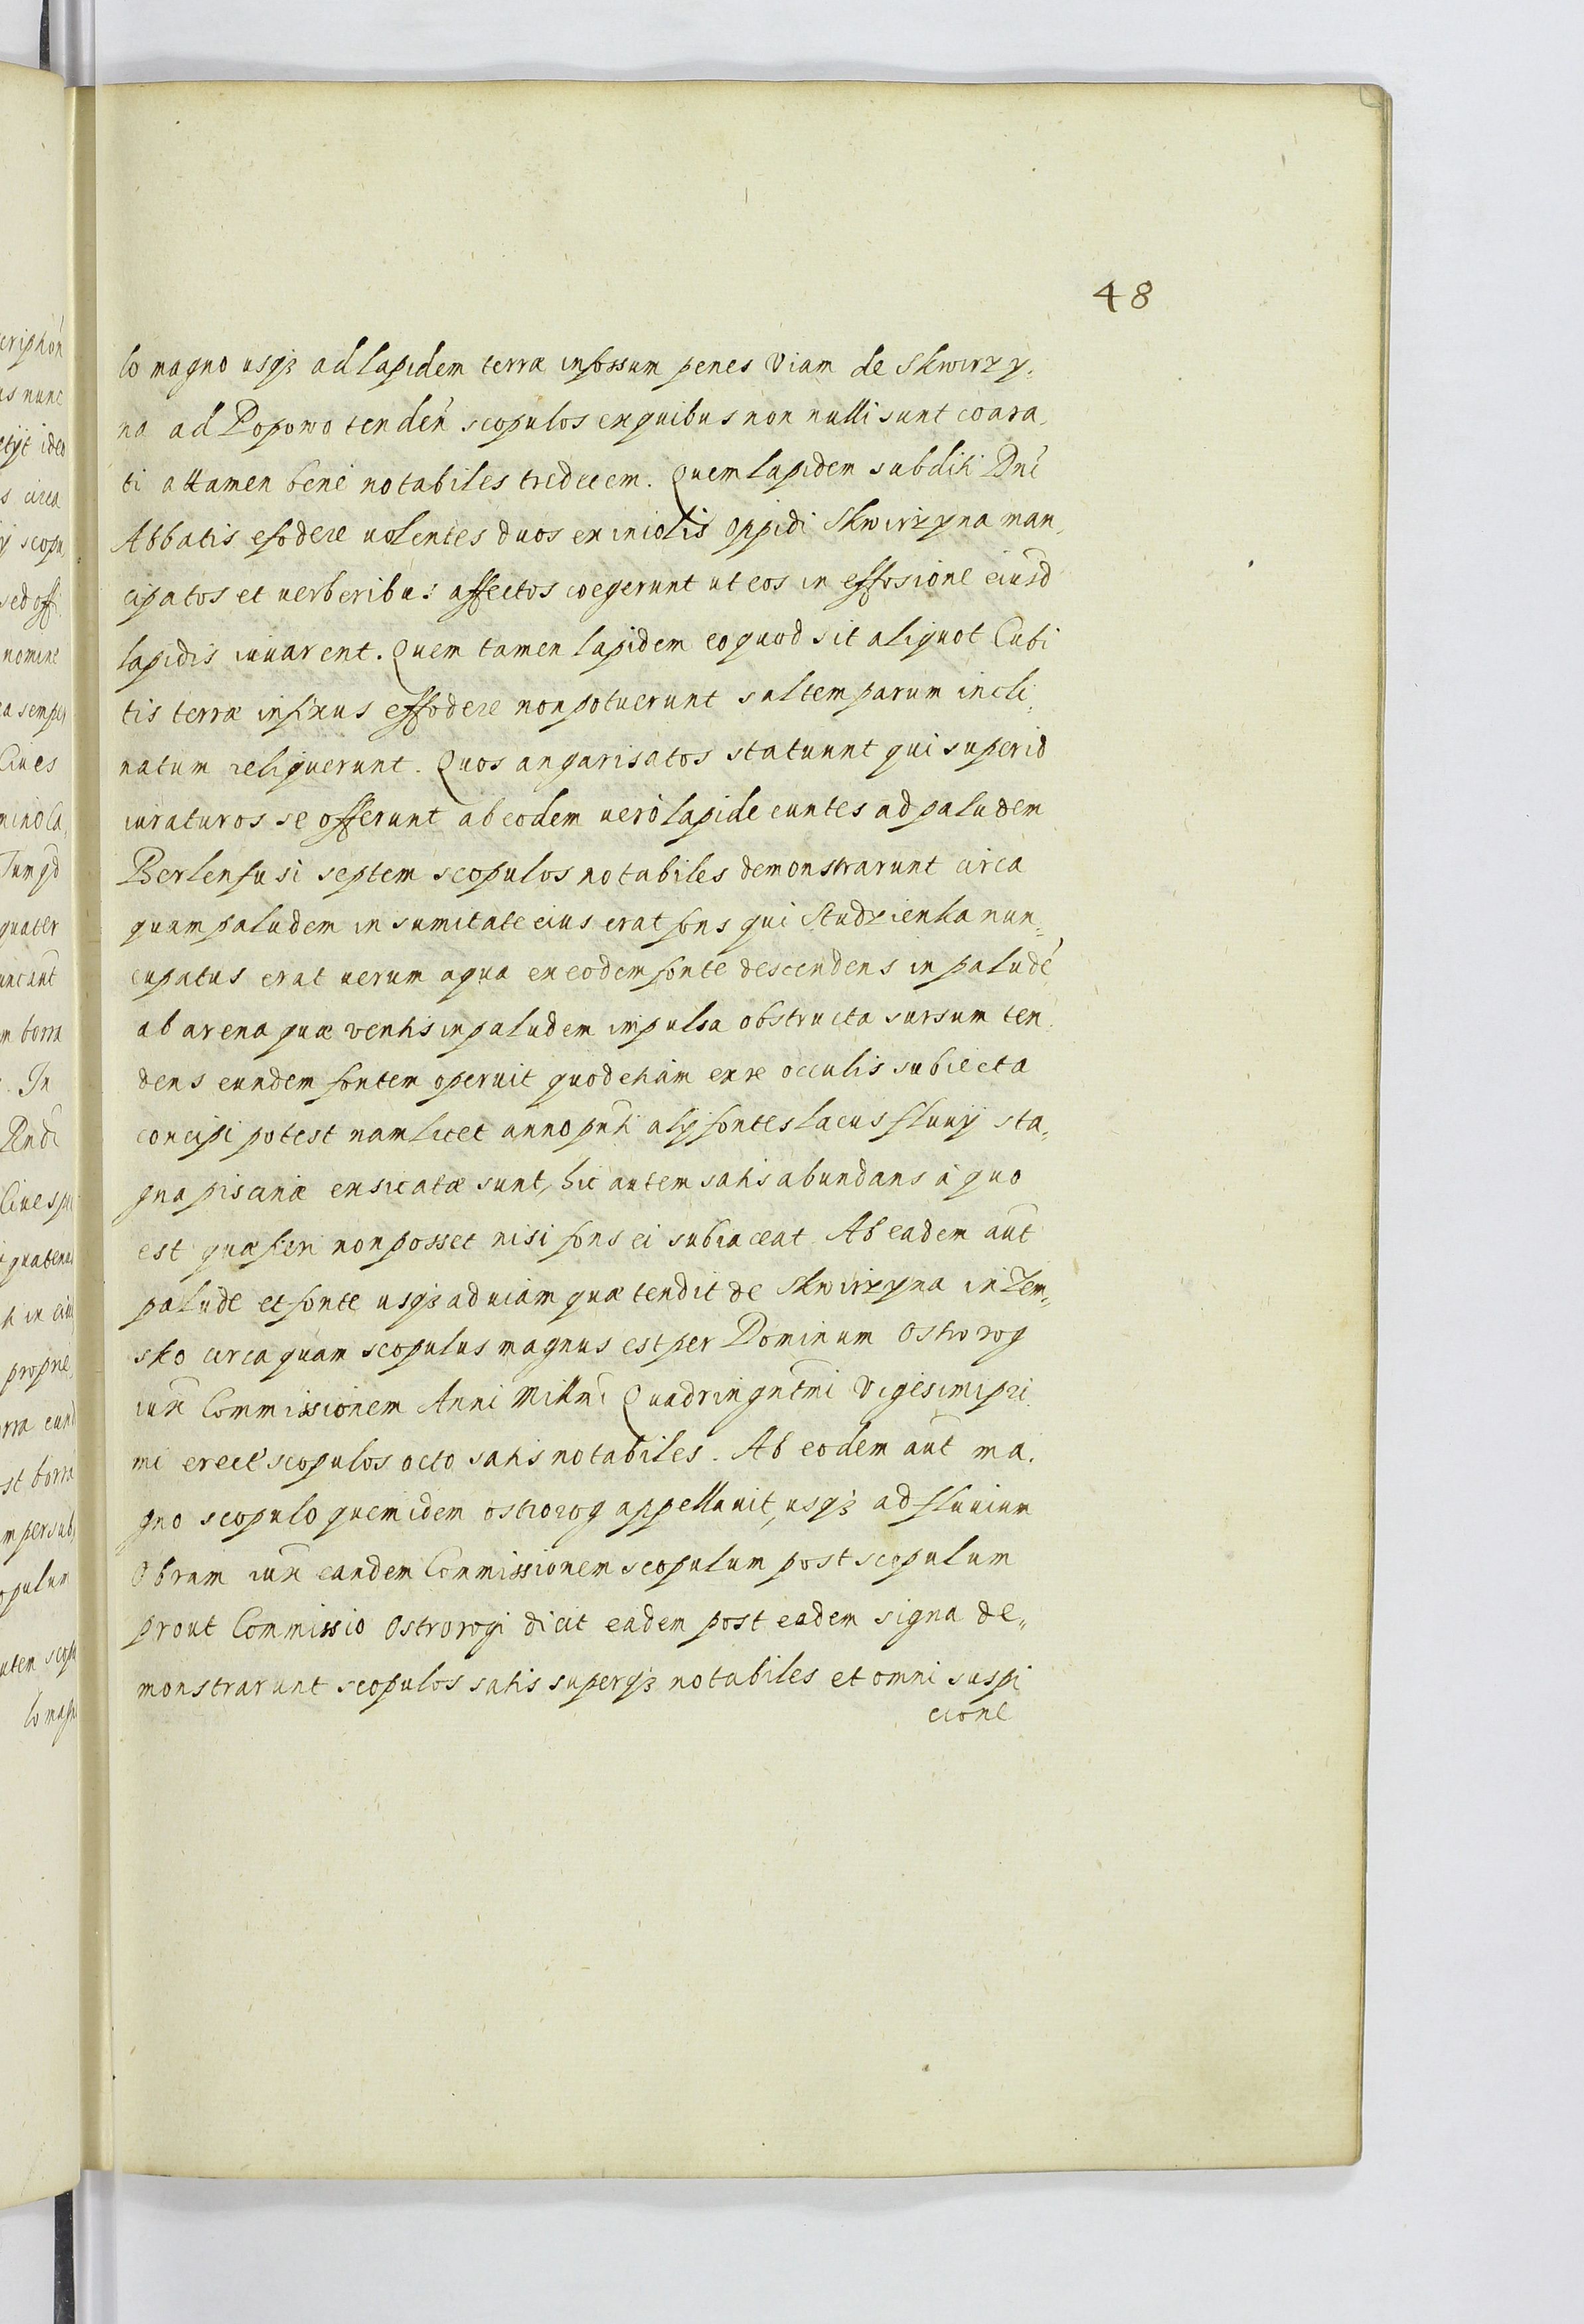 48
lo magno usqꝫ ad lapidem terræ infossum penes viam de Skwirzy„
na ad Popowo tenden̄ scopulos ex quibus non nulli sunt coara„
ti attamen bene notabiles tredecem. Quem lapidem subditi Dnī
Abbatis efodere uolentes duos ex incolis oppidi Skwirzyna man„
cipatos et uerberibus affectos coegerunt ut eos in effosione eiusd
lapidis iuuarent. Quem tamen lapidem eo quod sit aliquot Cubi
tis terræ infixus effodere non potuerunt saltem parum incli„
natum reliquerunt. Quos angarisatos statuunt qui super id
iuraturos se offerunt ab eodem uerò lapide euntes ad paludem
Berlenfusi septem scopulos notabiles demonstrarunt circa
quam paludem in sumitate eius erat fons qui Studzienka nun„
cupatus erat uerum aqua ex eodem fonte descendens in paludē
ab arena quæ ventis in paludem impulsa obstructa sursum ten„
dens eundem fontem operuit quod etiam ex re occulis subiecta
concipi potest nam licet anno pn̄ti alij fontes lacus fluuij sta„
gna piscinæ exsicatæ sunt, hic autem satis abundans à quo
est quæ fieri non posset nisi fons ei subiaceat. Ab eadem aut̄
palude et fonte usqꝫ ad uiam quæ tendit de Skwirzyna in Zem„
sko circa quam scopulus magnus est per Dominum Ostrorog
iux̄ Commissionem Anni Millmī Quadringnt̄mi Vigesimi pri„
mi erect̄ scopulos octo satis notabiles. Ab eodem aut̄ ma„
gno scopulo quem idem ostrorog appellauit, usqꝫ ad fluuium
Obram iux̄ eandem Commissionem scopulum post scopulum
prout Commissio Ostrorogi dicit eadem post eadem signa de„
monstrarunt scopulos satis superqꝫ notabiles et omni suspi
cione